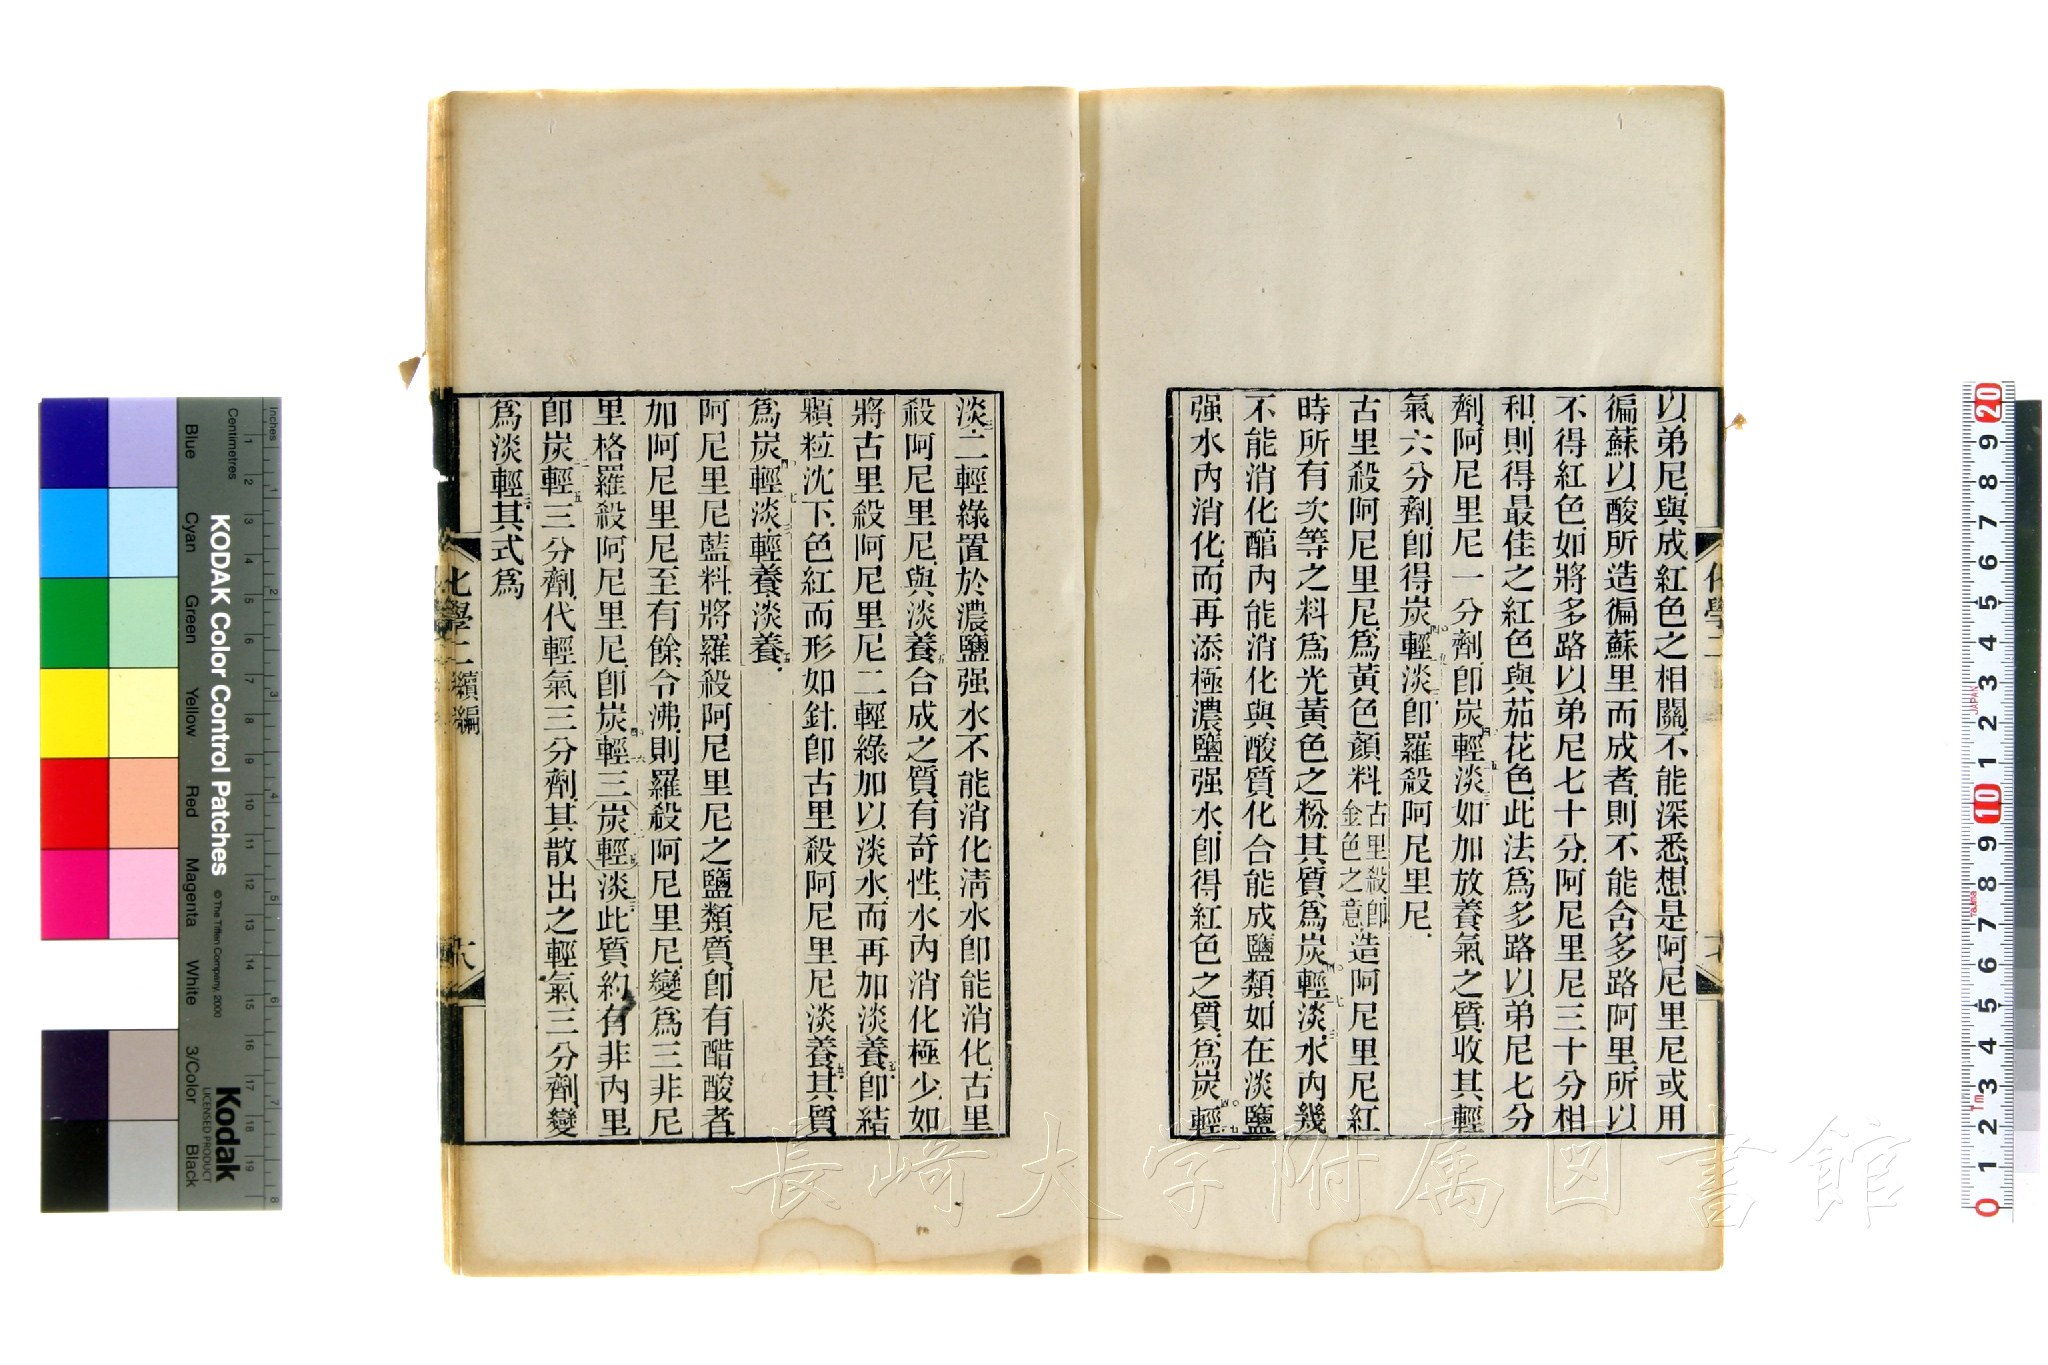 以弟尼與成紅色之相關不能深悉想是阿尼里尼或用
徧蘇以酸所造徧蘇里而成者則不能含多路阿里所以
不得紅色如將多路以弟尼七十分阿尼里尼三十分相
和則得最佳之紅色與茄花色此法爲多路以弟尼七分
劑阿尼里尼一分劑卽炭輕淡如加放養氣之質收其輕
氣六分劑卽得炭四〇輕一九淡三卽羅殺阿尼里尼
古里殺阿尼里尼爲黃色顏料古里殺卽金色之意造阿尼里尼紅
時所有次等之料爲光黃色之粉其質爲炭四〇輕一七淡三水內幾
不能消化醕內能消化與酸質化合能成鹽類如在淡鹽
强水內消化而再添極濃鹽强水卽得紅色之質爲炭四〇輕一七
淡三二輕綠置於濃鹽强水不能消化淸水卽能消化古里
殺阿尼里尼與淡養五合成之質有奇性水內消化極少如
將古里殺阿尼里尼二輕綠加以淡水而再加淡養五卽結
顆粒沈下色紅而形如針卽古里殺阿尼里尼淡養五其質
爲炭四〇輕一七淡三輕養淡養五
阿尼里尼藍料將羅殺阿尼里尼之鹽類質卽有醋酸者
加阿尼里尼至有餘令沸則羅殺阿尼里尼變爲三非尼
里格羅殺阿尼里尼卽炭四〇輕一六三炭一二輕五淡三此質約有非內里
卽炭一二輕五三分劑代輕氣三分劑其散出之輕氣三分劑變
爲淡輕三其式爲
化學二
化學二續編
十八
長崎大学附属図書館
KODAK Color Control Patches
© The Tiffen Company, 2000
Kodak
LICENSED PRODUCT
Inches
Centimetres
Blue
Cyan
Green
Yellow
Red
Magenta
White
3/Color
Black
JAPAN